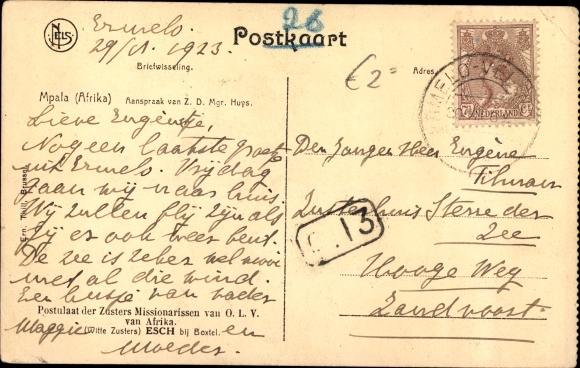 26
Ermelo.
29/11.1923.
NELS
Postkaart
Briefwisseling.
Adres
€2=
Mpala (Afrika) Aanspraak van Z. D. Mgr. Huys.
Lieve Eugène,
Nog een laatste groet
uit Ermelo. Vrijdag
gaan wij naar huis.
Wij zullen blij zijn als
jij er ook weer bent.
De zee is zeker wel mooi
met al die wind.
Een kusje van vader
en
Maggie
Moeder.
Postulaat der Zusters Missionarissen van O. L. V.
van Afrika.
(Witte Zusters) ESCH bij Boxtel.
Ern. Thill, Brussel
ERMELO-V
7½ Ct
NEDERLAND
Den Jongen Heer Eugène
Zusterhuis Sterre der
Zee
Hooge Weg
Zandvoort.
13